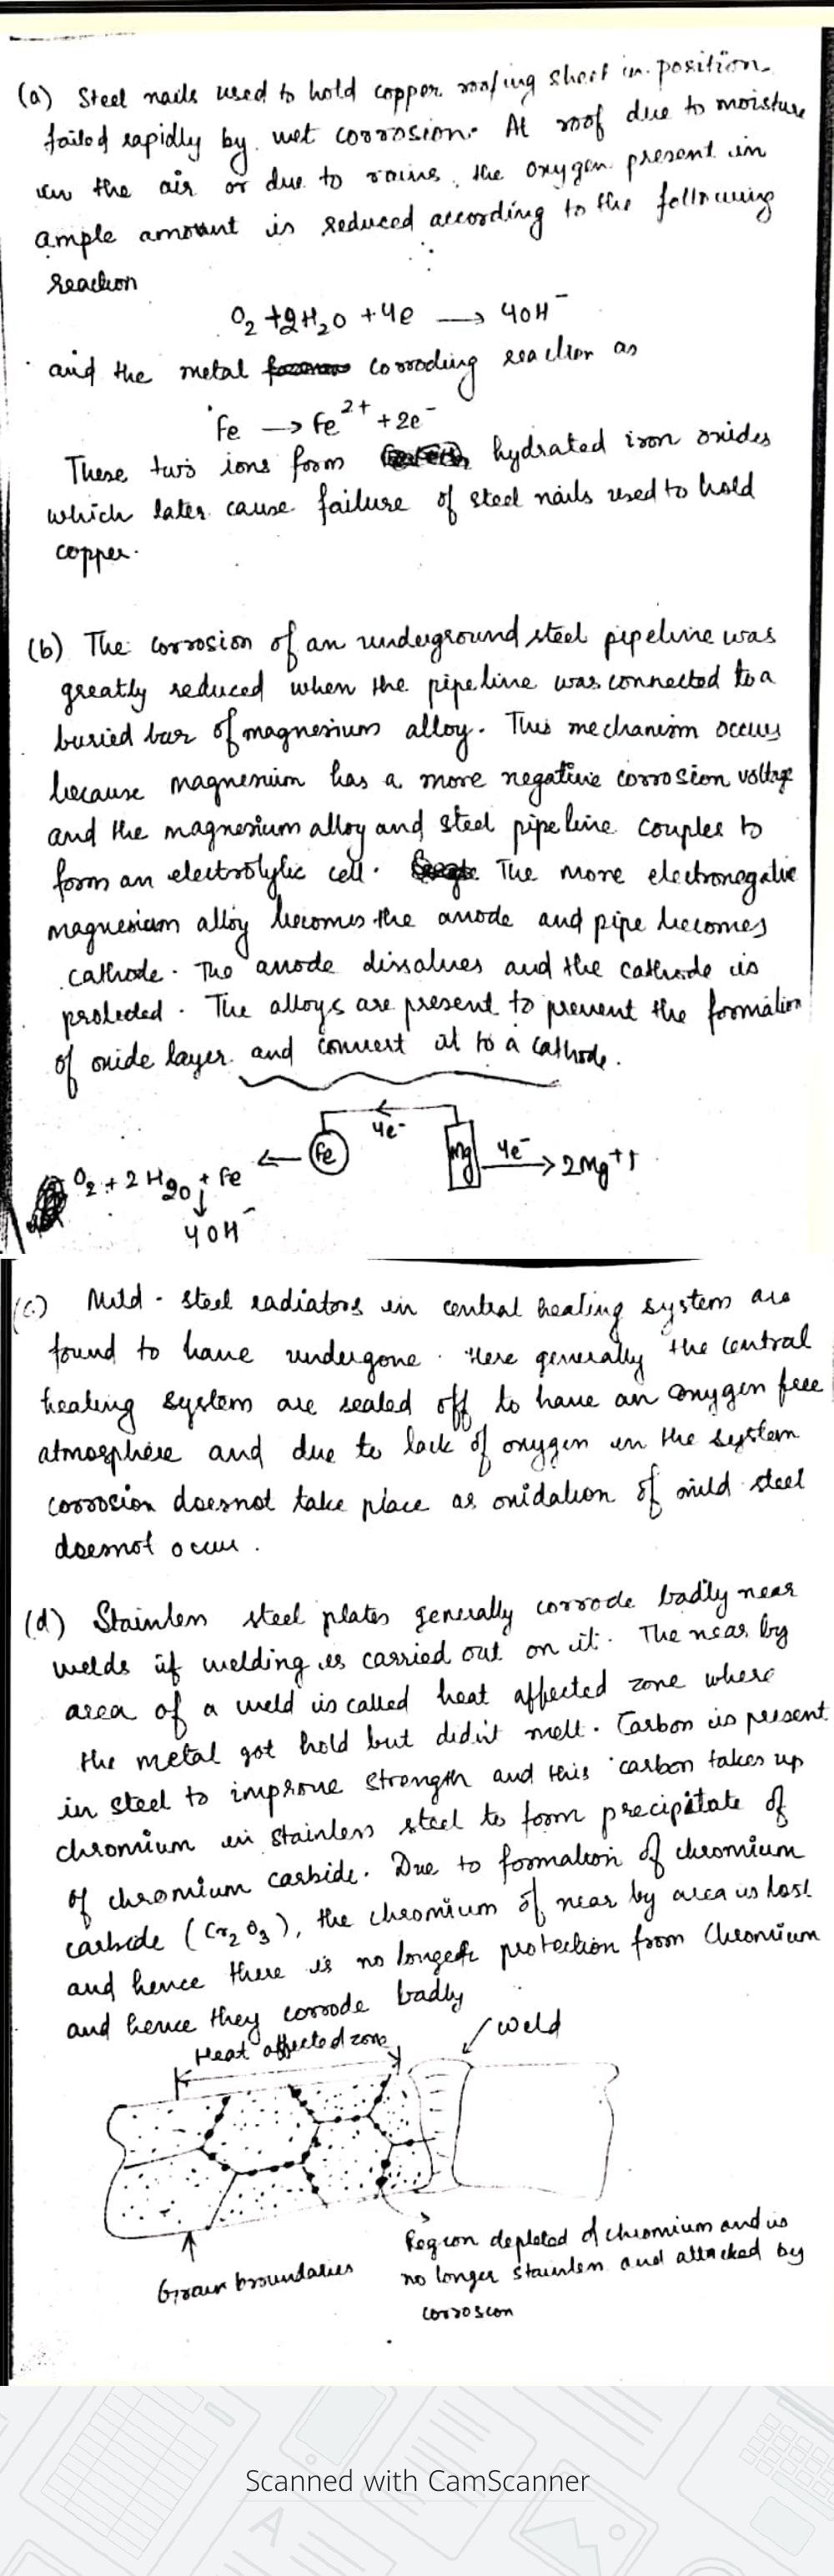 (a) Steel nails used to hold copper roofing sheet in position
failed rapidly by wet corrosion. At roof due to moisture
in the air or due to rains, the oxygen present in
ample amount is reduced according to the following
reaction
O2 + 2H2O + 4e → 4OH⁻
and the metal corroding reaction as
Fe → Fe²⁺ + 2e⁻
These two ions form hydrated iron oxides
which later cause failure of steel nails used to hold
copper.
(b) The corrosion of an underground steel pipeline was
greatly reduced when the pipeline was connected to a
buried bar of magnesium alloy. This mechanism occurs
because magnesium has a more negative corrosion voltage
and the magnesium alloy and steel pipe line couples to
form an electrolytic cell. The more electronegative
magnesium alloy becomes the anode and pipe becomes
cathode. The anode dissalues and the cathode is
protected. The alloys are present to prevent the formation
of oxide layer and convert it to a cathode.
4e⁻
Fe
Mg
4e⁻ → 2Mg⁺⁺
O2 + 2H2O + Fe
↓
4OH⁻
(c) Mild-steel radiators in central heating system are
found to have undergone. Here generally the central
heating system are sealed off to have an oxygen free
atmosphere and due to lack of oxygen in the system
corrosion doesnot take place as oxidation of mild steel
doesnot occur.
(d) Stainless steel plates generally corrode badly near
welds if welding is carried out on it. The near by
area of a weld is called heat affected zone where
the metal got hold but didn't melt. Carbon is present
in steel to improve strength and this carbon takes up
chromium in stainless steel to form precipitate of
of chromium carbide. Due to formation of chromium
carbide (Cr2O3), the chromium of near by area is lost
and hence there is no longer protection from Chromium
and hence they corrode badly
Heat affected zone
weld
Grain broundaries
Region depleted of chromium and is
no longer stainless and attacked by
corroscon
Scanned with CamScanner